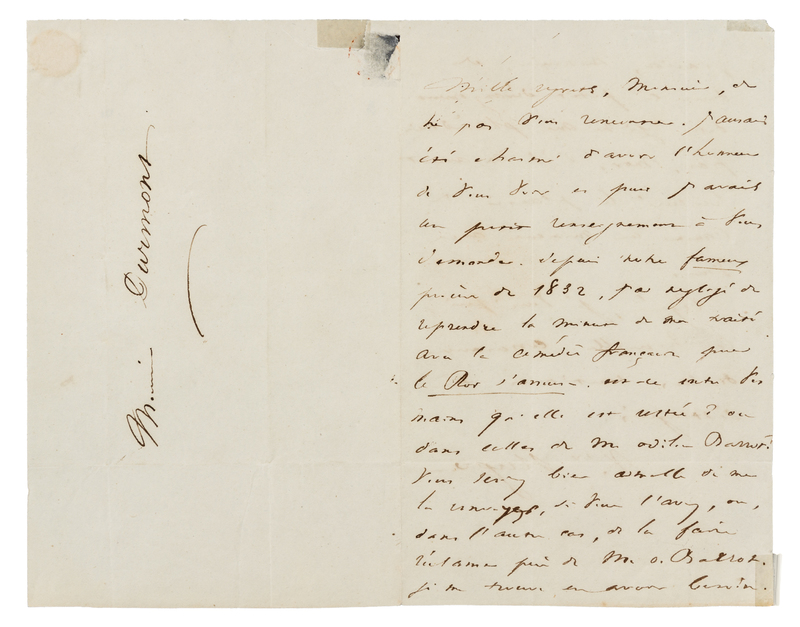 Monsieur
Durmont
Mille regrets, Monsieur, de
ne pas vous rencontrer. J'aurais
été charmé d'avoir l'honneur
de vous voir et puis j'avais
un petit renseignement à vous
demander. Depuis notre fameux
procès de 1832, j'ai négligé de
reprendre la minute de mon traité
avec la comédie française pour
le Roi s'amuse. est-ce entre vos
mains qu'elle est restée ? ou
dans celles de M. odilon Barrot ?
Vous seriez bien aimable de me
la renvoyer, si vous l'avez, ou,
dans l'autre cas, de la faire
réclamer près de M. o. Barrot.
je me trouve en avoir besoin.